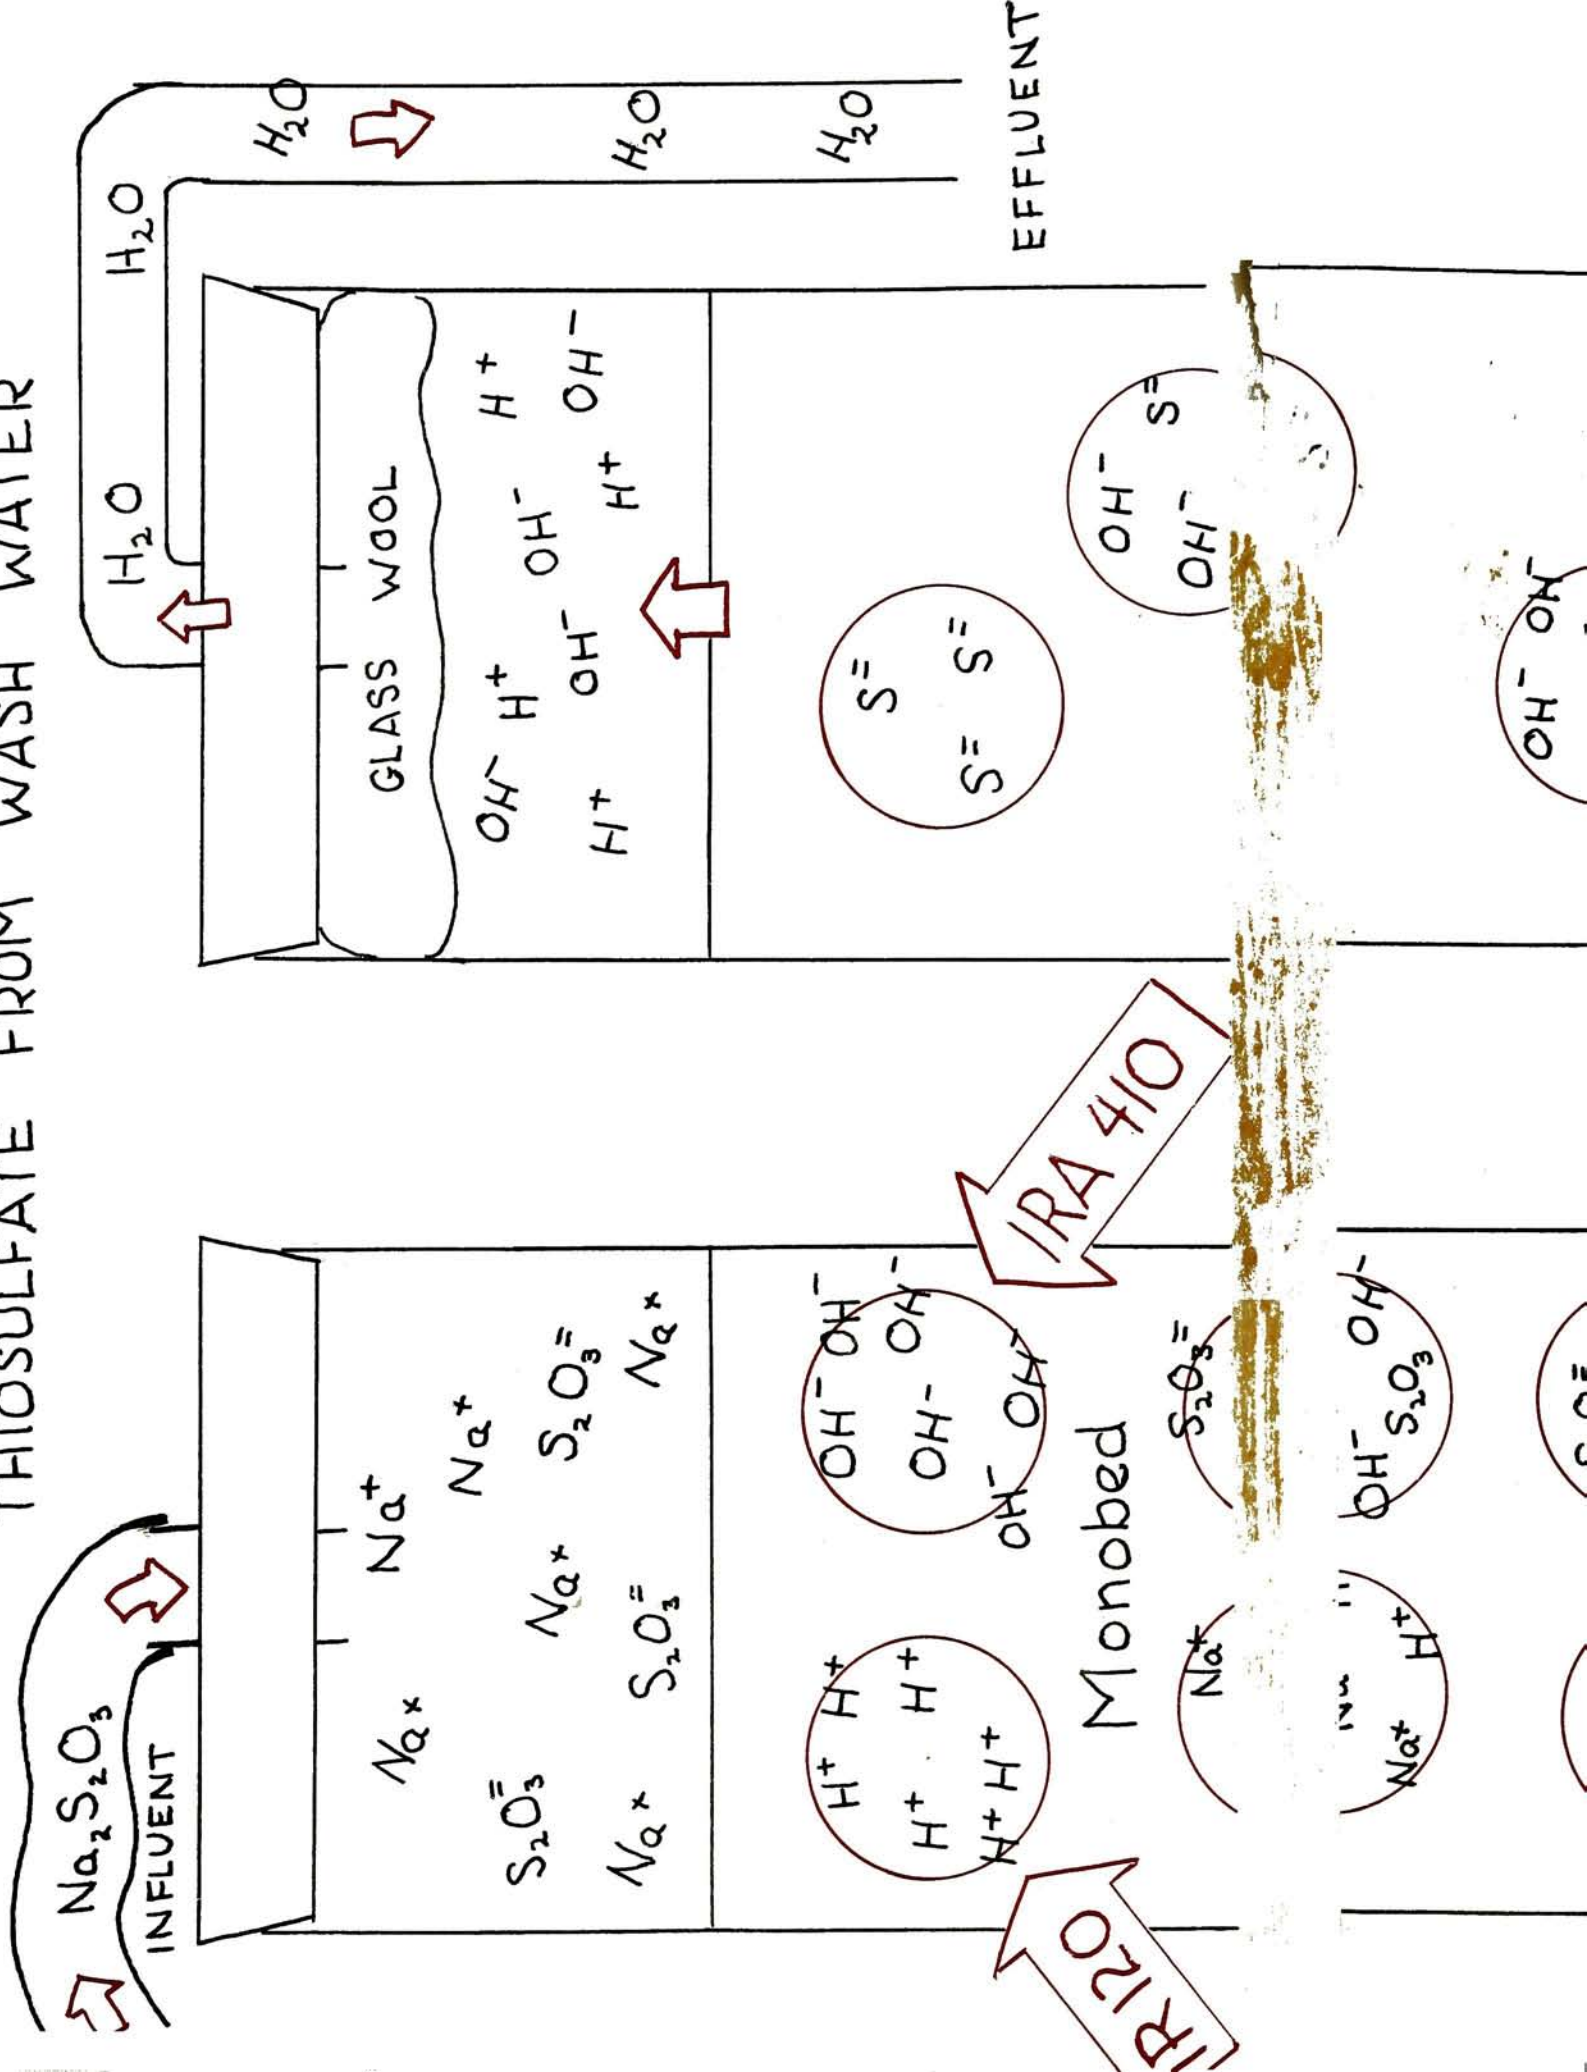 THIOSULFATE FROM WASH WATER
Na₂S₂O₃
INFLUENT
Na⁺
Na⁺
Na⁺
S₂O₃⁼
Na⁺
S₂O₃⁼
Na⁺
S₂O₃⁼
Na⁺
H⁺ H⁺
H⁺ H⁺
H⁺ H⁺
OH⁻ OH⁻
OH⁻ OH⁻
OH⁻ OH⁻
IR 120
Monobed
IRA 410
Na⁺
Na⁺ H⁺
S₂O₃⁼
OH⁻ OH⁻
S₂O₃
H₂O H₂O
H₂O
H₂O
H₂O
EFFLUENT
GLASS WOOL
OH⁻ H⁺ OH⁻ H⁺
H⁺ OH⁻ H⁺ OH⁻
S⁼
S⁼ S⁼
OH⁻ S⁼
OH⁻
OH⁻ OH⁻